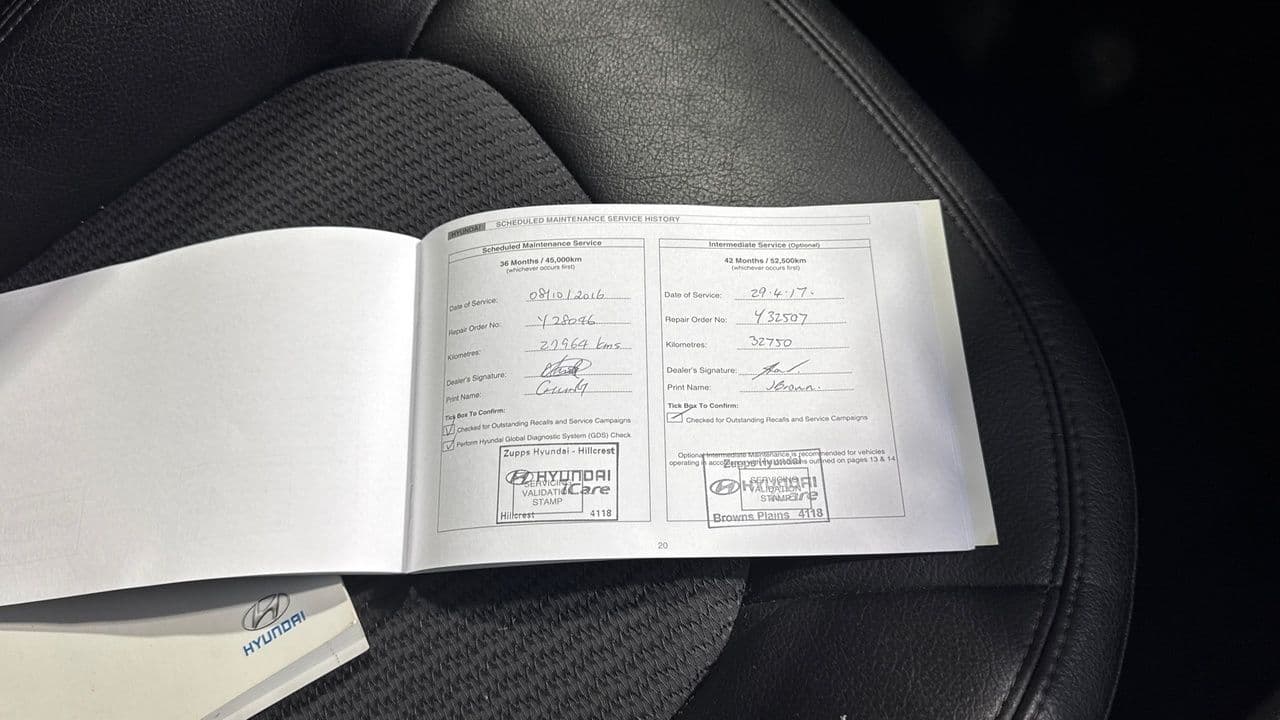 HYUNDAI SCHEDULED MAINTENANCE SERVICE HISTORY
Scheduled Maintenance Service
36 Months / 45,000km
(whichever occurs first)
Date of Service: 08/10/2016
Repair Order No: Y28046
Kilometres: 27964 kms
Dealer's Signature:
Print Name:
Tick Box To Confirm:
Checked for Outstanding Recalls and Service Campaigns
Perform Hyundai Global Diagnostic System (GDS) Check
Zupps Hyundai - Hillcrest
HYUNDAI
iCare
SERVICING
VALIDATION
STAMP
Hillcrest 4118
Intermediate Service (Optional)
42 Months / 52,500km
(whichever occurs first)
Date of Service: 29.4.17.
Repair Order No: Y32507
Kilometres: 32750
Dealer's Signature:
Print Name: J Brown.
Tick Box To Confirm:
Checked for Outstanding Recalls and Service Campaigns
Optional Intermediate Maintenance is recommended for vehicles
operating in outlined on pages 13 & 14
Zupps Hyundai
HYUNDAI
SERVICING
VALIDATION
STAMP
Browns Plains 4118
20
HYUNDAI